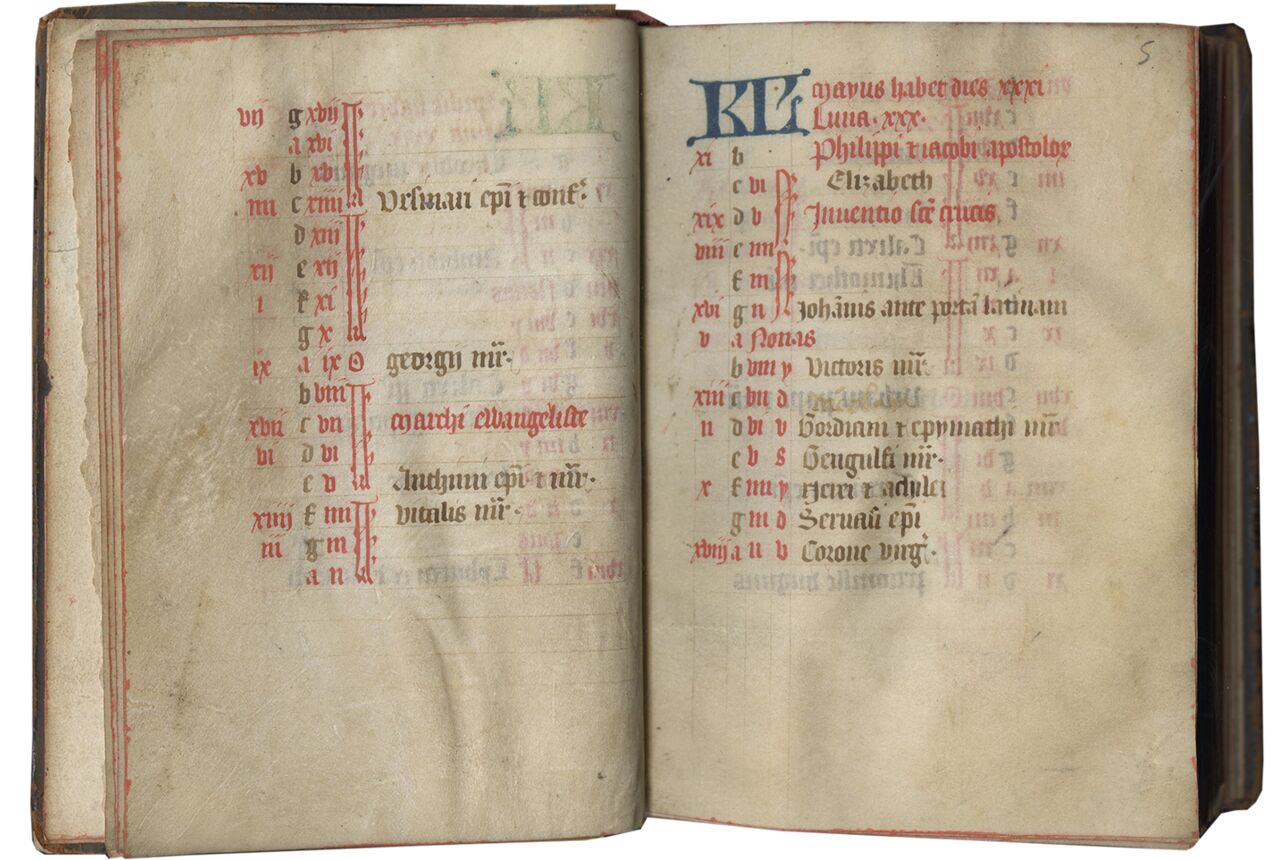 vij g xvij
a xvi
xv b xvi
iiii c xiiii Ursmari epi & conf
d xiii
xij e xij
i f xi
g x
ix a ix georgij mr.
b viii
xvij c vij Marchi ewangeliste
vi d vi
e v Anthimi epi & mr.
xiiij f iiii vitalis mr.
iii g iii
a ii
5
KL Mayus habet dies xxxi
Luna. xxx.
xi b Philippi & iacobi apostolor
c vi Elizabeth
xix d v Inventio sce crucis
viii e iiii
f iii
xvi g ii Johanis ante porta latinam
v a Nonas
b viii y Victoris mr.
xiii c vii d
ii d vi v Gordiani & epymachi mr
e v s Gengulfi mr.
x f iiii y Nerei & achilei
g iii d Servasii epi
xviij a ii v Corone virg.